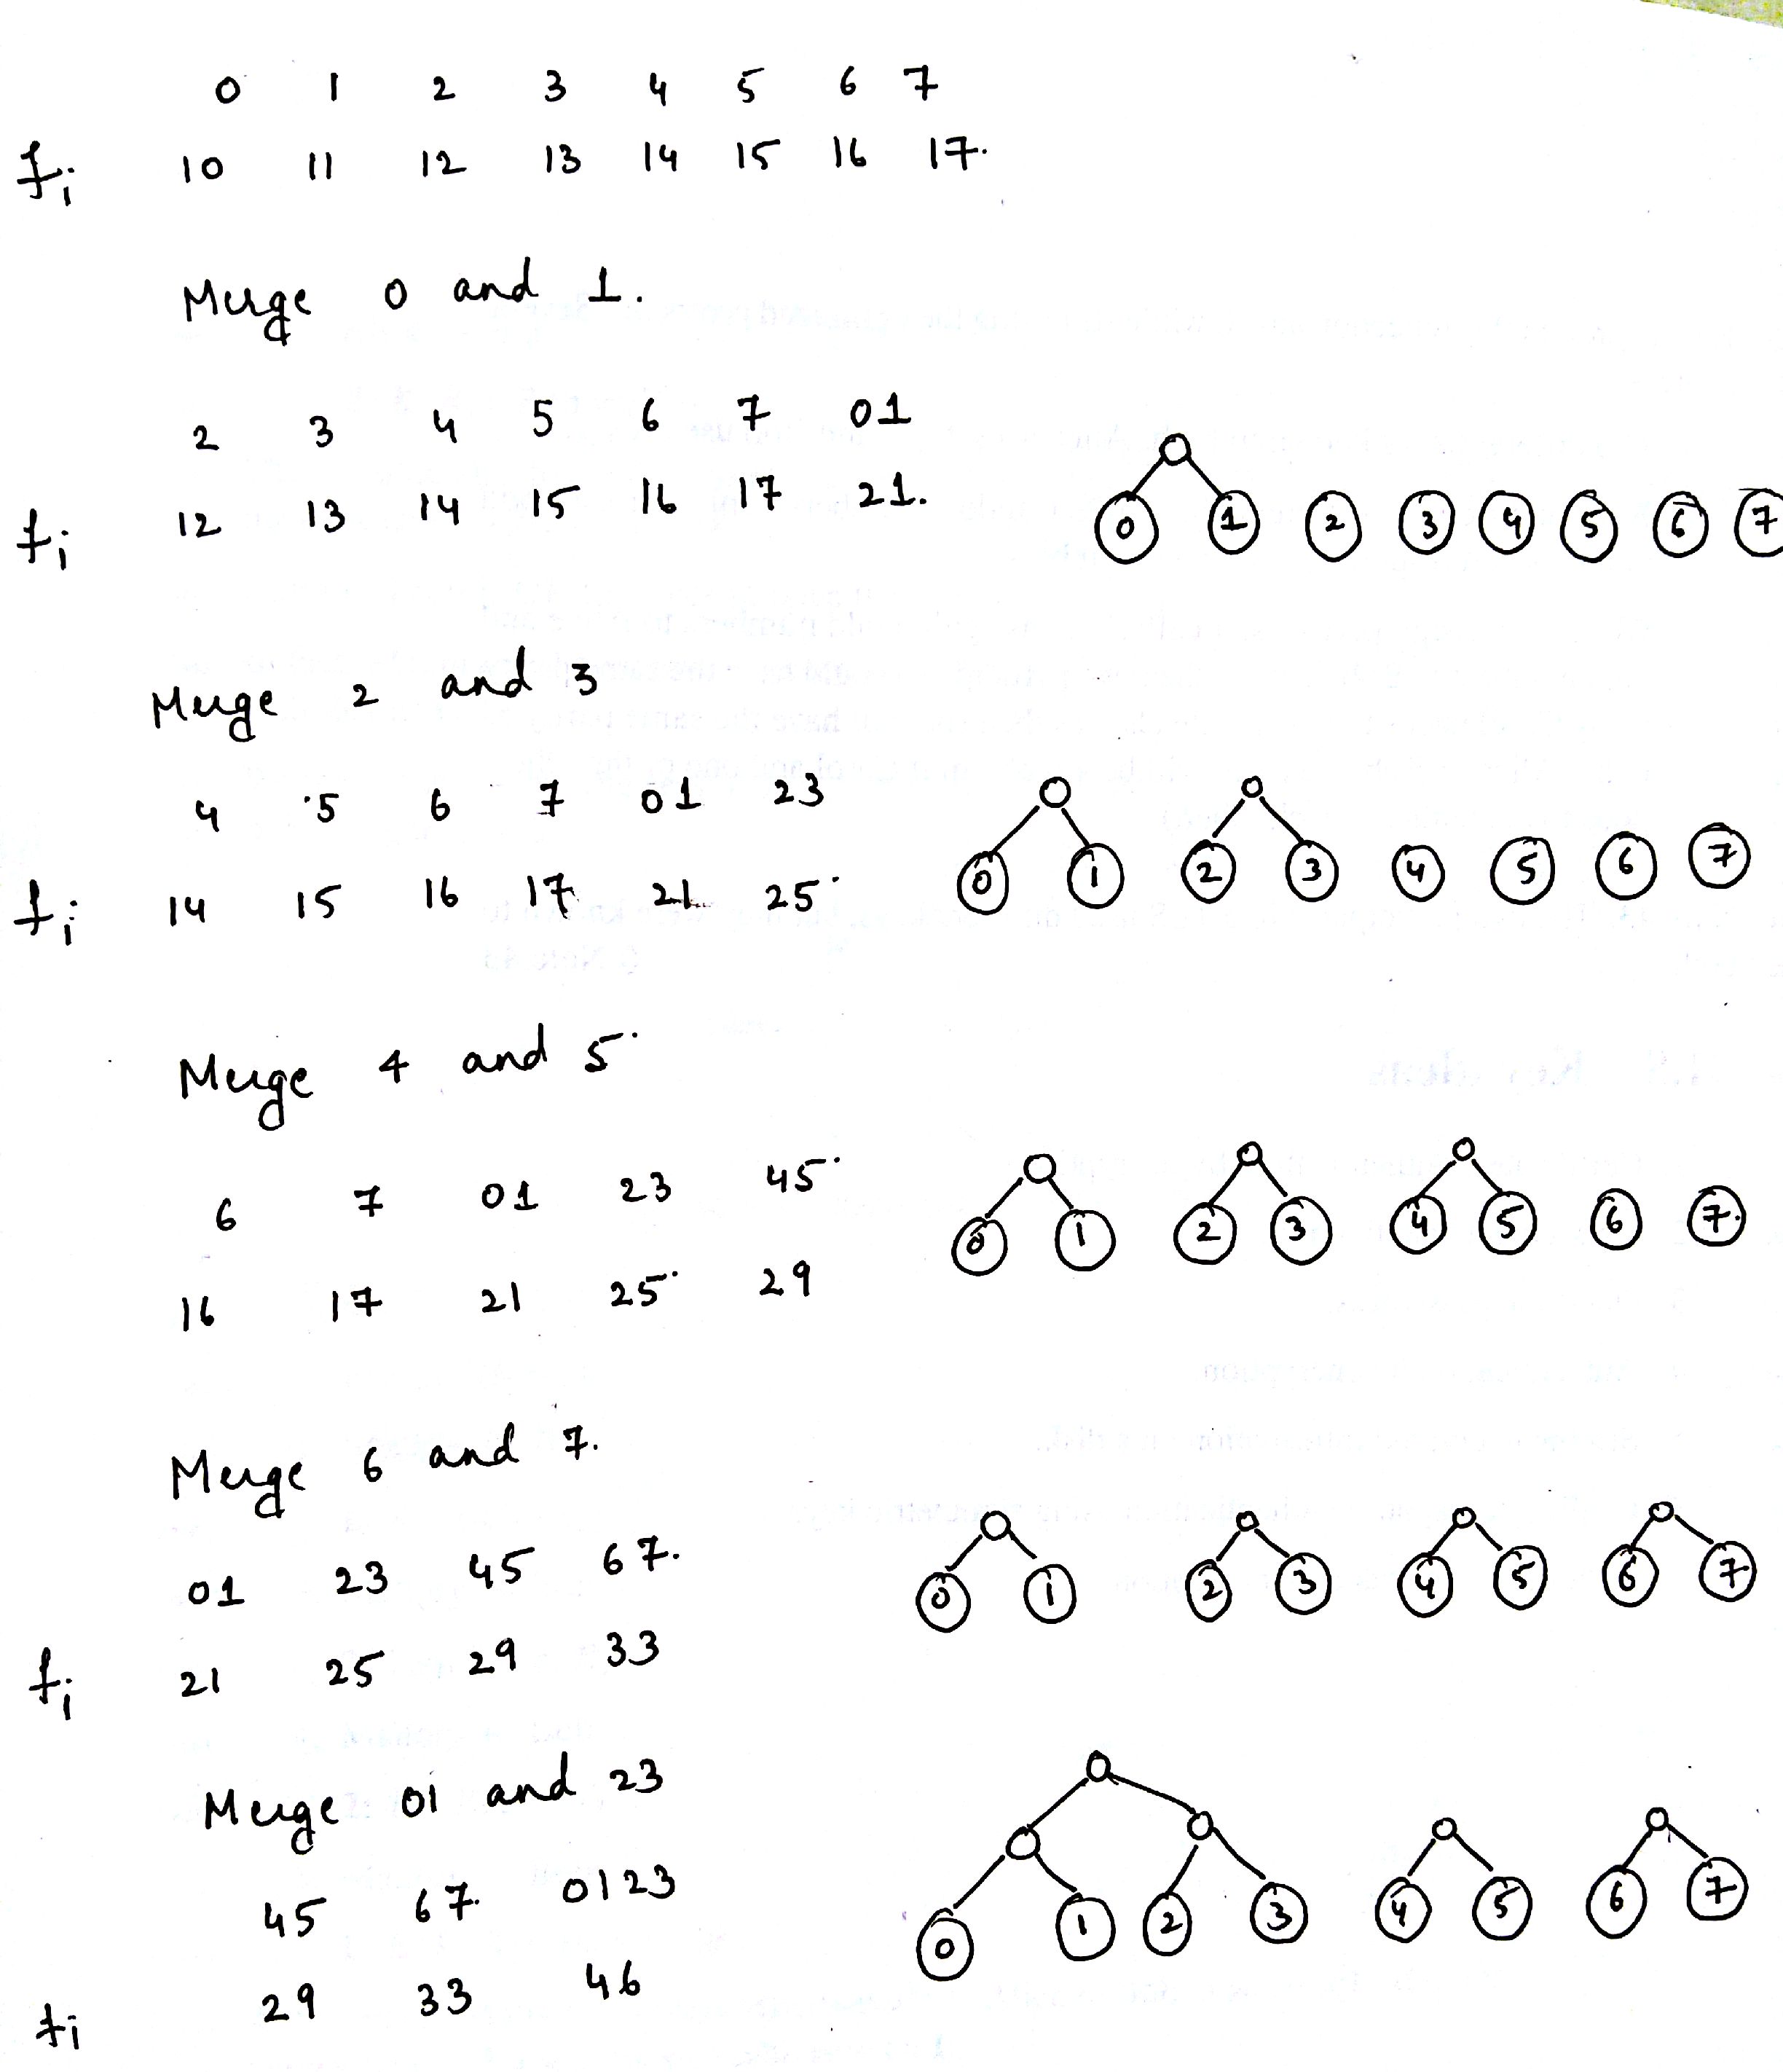 0 1 2 3 4 5 6 7
fi 10 11 12 13 14 15 16 17.
Merge 0 and 1.
2 3 4 5 6 7 01
fi 12 13 14 15 16 17 21.
0 1 2 3 4 5 6 7
Merge 2 and 3
4 5 6 7 01 23
fi 14 15 16 17 21 25
0 1 2 3 4 5 6 7
Merge 4 and 5
6 7 01 23 45
16 17 21 25 29
0 1 2 3 4 5 6 7
Merge 6 and 7.
01 23 45 67.
fi 21 25 29 33
0 1 2 3 4 5 6 7
Merge 01 and 23
45 67 0123
fi 29 33 46
0 1 2 3 4 5 6 7